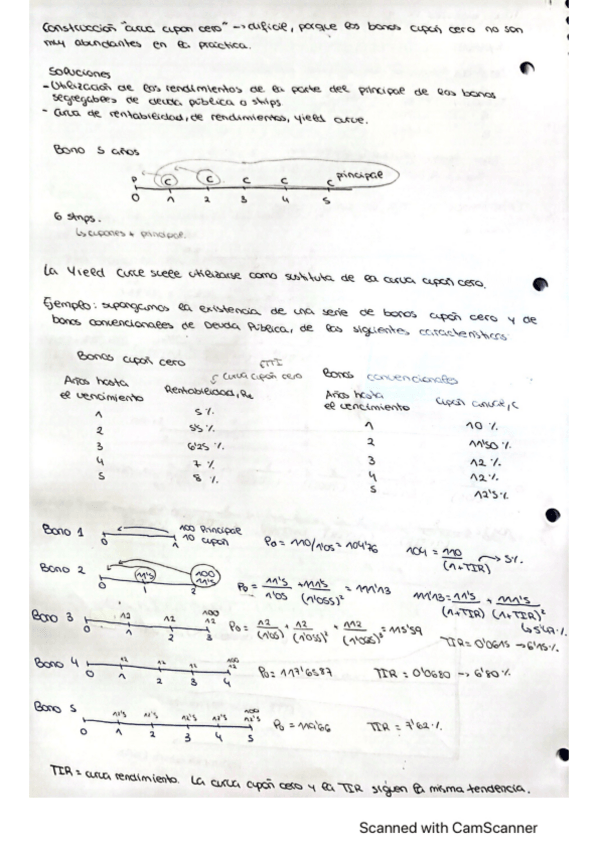 Construcción "curva cupon cero" -> dificil, porque los bonos cupón cero no son
muy abundantes en la práctica.
Soluciones
- Utilización de los rendimientos de la parte del principal de los bonos
segregables de deuda pública o strips.
- Curva de rentabilidad, de rendimientos, yield curve.
Bono 5 años
P C C C C C principal
0 1 2 3 4 5
6 strips.
↳ cupones + principal.
La Yield Curve suele utilizarse como sustituta de la curva cupón cero.
Ejemplo: supongamos la existencia de una serie de bonos cupón cero y de
bonos convencionales de Deuda Pública, de las siguientes características
Bonos cupón cero ETTI
Curva cupón cero
Años hasta el vencimiento Rentabilidad, Re
1 5%
2 5'5%
3 6'25%
4 7%
5 8%
Bonos convencionales
Años hasta el vencimiento Cupón anual, C
1 10%
2 11'50%
3 12%
4 12%
5 12'5%
Bono 1 0 1 100 Principal 10 cupón P0 = 110/1'05 = 104'76 104 = 110/(1+TIR) -> 5%.
Bono 2 0 1 2 11'5 100 11'5 P0 = 11'5/1'05 + 111'5/(1'055)² = 111'13 111'13 = 11'5/(1+TIR) + 111'5/(1+TIR)²
↳ 5'49%
Bono 3 0 1 2 3 12 12 100 12 P0 = 12/(1'05) + 12/(1'055)² + 112/(1'0625)³ = 115'59 TIR = 0'0615 -> 6'15%
Bono 4 0 1 2 3 4 12 12 12 100 12 P0 = 117'6587 TIR = 0'0680 -> 6'80%
Bono 5 0 1 2 3 4 5 12'5 12'5 12'5 12'5 100 12'5 P0 = 119'66 TIR = 7'62%
TIR = curva rendimiento. La curva cupón cero y la TIR siguen la misma tendencia.
Scanned with CamScanner